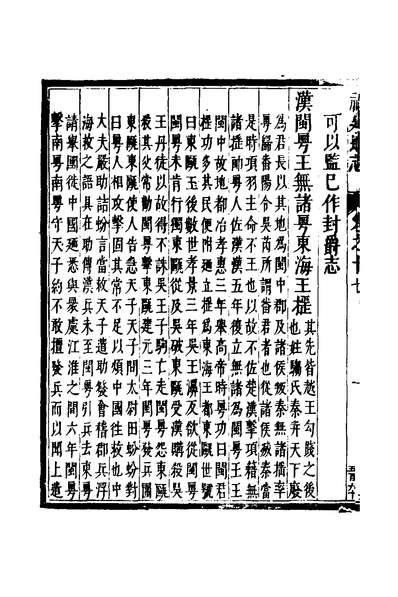 可以監巳作封爵志
漢閩粵王無諸粵東海王搖
其先皆越王勾踐之後
也姓騶氏秦幷天下廢
為君長以其地為閩中郡及諸侯叛秦無諸搖率
粵歸番陽令吳芮所謂番君者也從諸侯滅秦當
是時項羽主命不王也以故不佐楚漢擊項籍無
諸搖帥粵人佐漢漢五年復立無諸為閩粵王王
閩中故地都冶孝惠三年舉高帝時粵功曰閩君
搖功多其民便附廼立搖為東海王都東甌世號
曰東甌王後數世孝景三年吳王濞反欲從閩粵
閩粵未肯行獨東甌從及吳破東甌受漢購殺吳
王丹徒以故得不誅吳王子駒亡走閩粵怨東甌
殺其父常勸閩粵擊東甌建元三年閩粵發兵圍
東甌東甌使人告急天子天子問太尉田蚡蚡對
曰粵人相攻擊固其常不足以煩中國往救也中
大夫嚴助詰蚡言當救天子遣助發會稽郡兵浮
海救之語具在助傳漢兵未至閩粵引兵去東粵
請舉國徙中國廼悉與衆處江淮之間六年閩粵
擊南粵南粵守天子約不敢擅發兵而以聞上遣